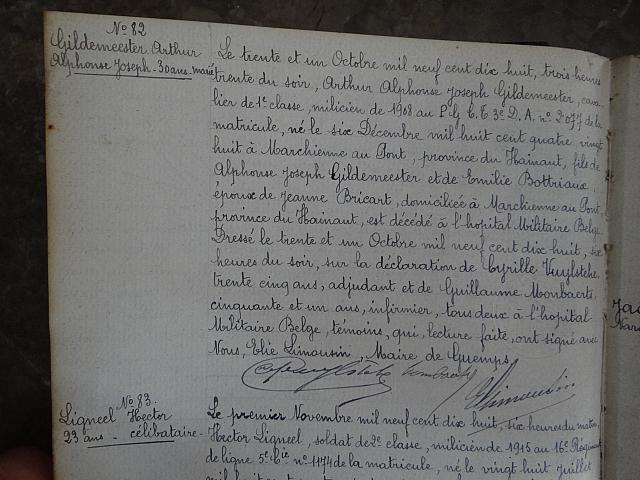 No 82
Gildemeester Arthur
Alphonse Joseph - 30 ans - marié
Le trente et un Octobre mil neuf cent dix huit, trois heures
trente du soir, Arthur Alphonse Joseph Gildemeester, cava
lier de 1e classe, milicien de 1908 au P.G. C.T. 3e D.A. no 2077 de la
matricule, né le six Décembre mil huit cent quatre vingt
huit à Marchienne au Pont, province du Hainaut, fils de
Alphonse Joseph Gildemeester et de Emilie Bottriaux,
époux de Jeanne Bricart, domiciliée à Marchienne au Pont,
province du Hainaut, est décédé à l'hopital Militaire Belge.
Dressé le trente et un Octobre mil neuf cent dix huit, six
heures du soir, sur la déclaration de Cyrille Vuylsteke,
trente cinq ans, adjudant et de Guillaume Monbaerts,
cinquante et un ans, infirmier, tous deux à l'hopital
Militaire Belge, témoins, qui, lecture faite, ont signé avec
Nous, Elie Limousin, Maire de Guemps.
No 83.
Ligneel Hector
23 ans - célibataire -
Le premier Novembre mil neuf cent dix huit, six heures du matin,
Hector Ligneel, soldat de 2e classe, milicien de 1915 au 16e Régiment
de ligne 5e Cie no 1174 de la matricule, né le vingt huit Juillet